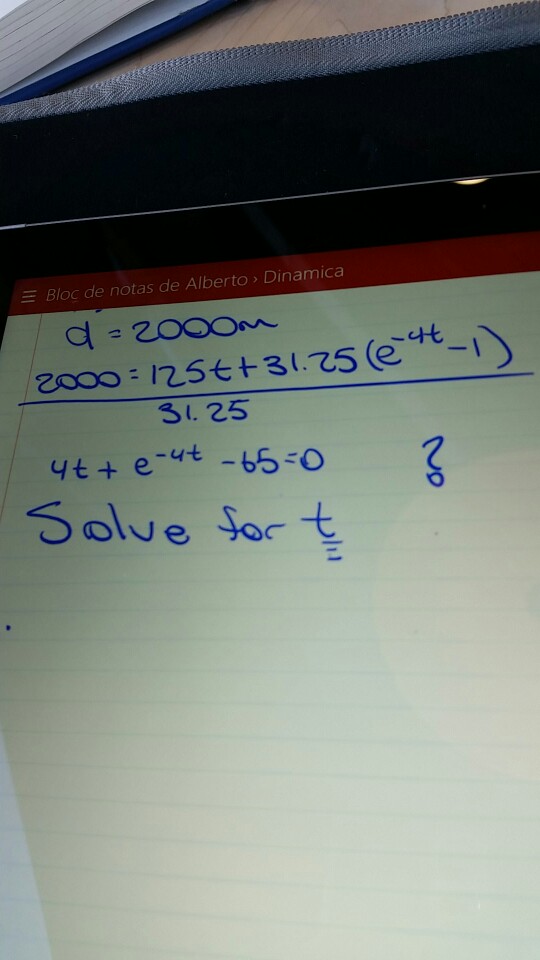 ☰ Bloc de notas de Alberto › Dinamica
d = 2000m
2000 = 125t + 31.25 (e^-4t - 1)
31.25
4t + e^-4t - 65 = 0 ?
Solve for t